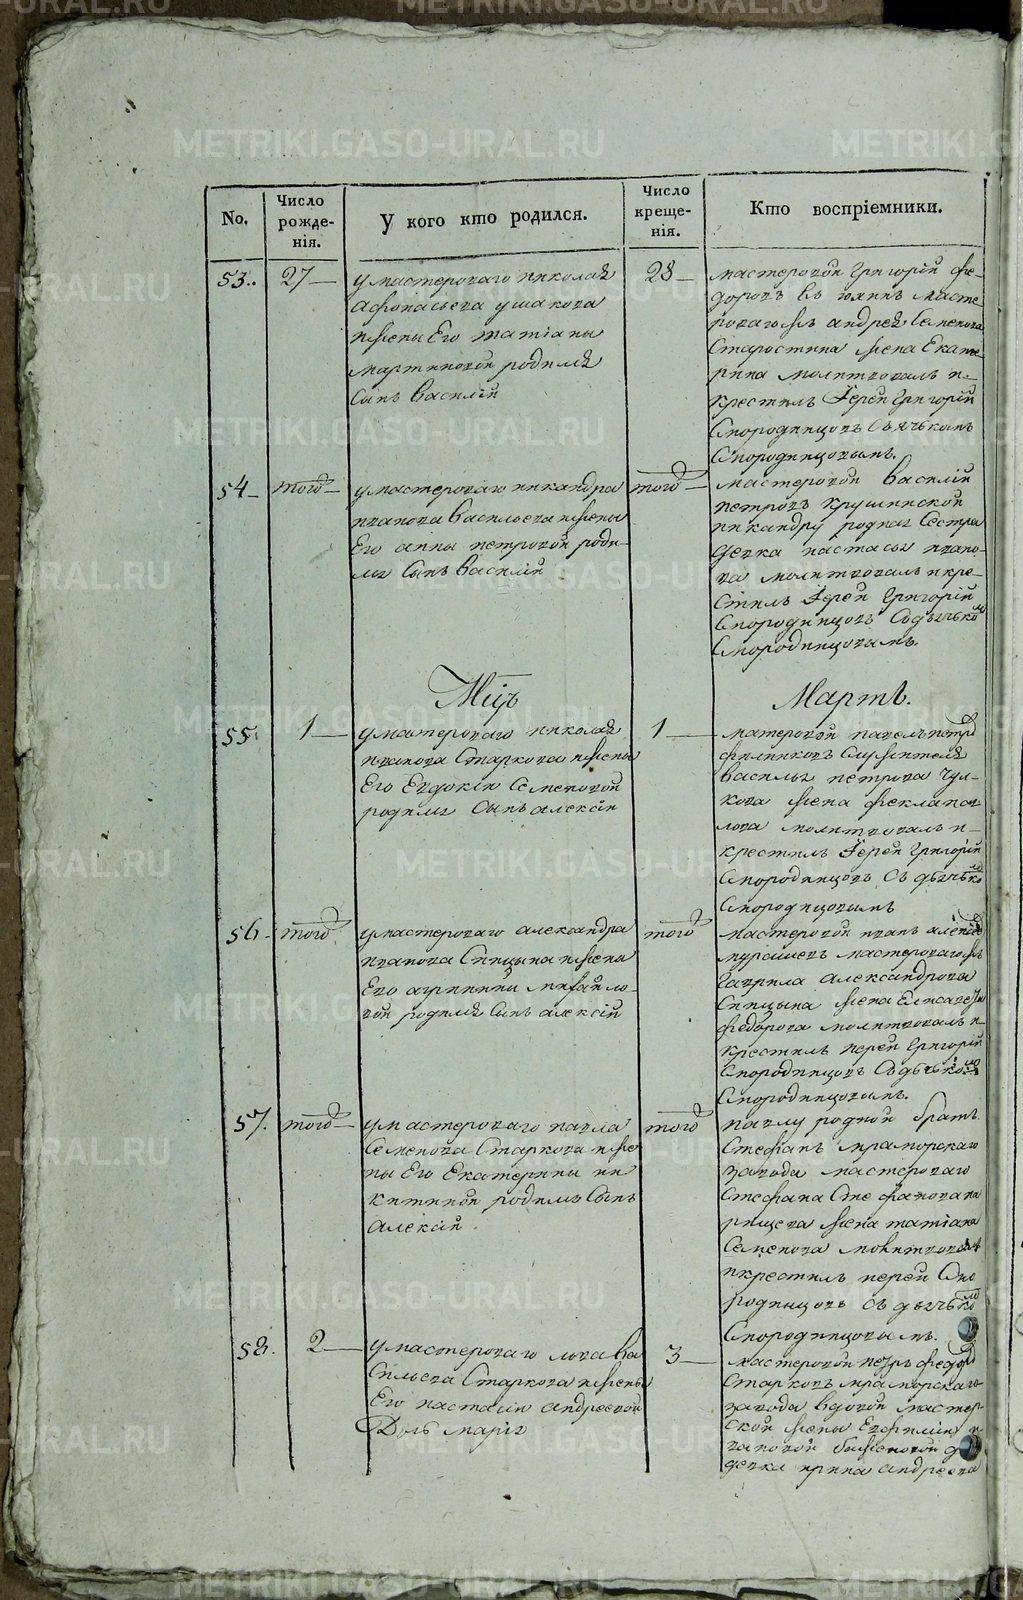 No.
Число рожде-нія.
У кого кто родился.
Число креще-нія.
Кто воспріемники.
53.
27
у мастероваго николая
афонасьева ушакова
жены Его татіаны
мартиновой родился
сынъ василій
28
мастеровой григорій фе-
доровъ
роваго андрея семенова
Старостина жена Екате-
рина молитвовалъ и
крестилъ Іерей григорій
Смородинцовъ съ дьячькомъ
Смородинцовымъ.
54
того
у мастероваго никандра
иванова васильева жены
Его анны петровой роди-
лся сынъ василій
того
мастеровой василій
петровъ крушинской
никандру родная сестра
девка настасья ивано-
ва молитвовалъ и кре-
стилъ Іерей григорій
Смородинцовъ съ дьячько
Смородинцовымъ.
Мцъ
Мартъ.
55.
1
у мастероваго николая
иванова Старкова жены
Его Евдокіи Семеновой
родился сынъ алексій
1
мастеровой павелъ петро
филинковъ служителя
василья петрова чул-
кова жена фекла пав
лова молитвовалъ и
крестилъ Іерей григорій
Смородинцовъ съ дьячько
Смородинцовымъ
56
того
у мастероваго александра
иванова Спицына жены
Его агрипины михайло-
вой родился сынъ алексій
того
мастеровой иванъ алексіе
мурашевъ мастероваго
гаврила александрова
Спицына жена Елисаве
федорова молитвовалъ и
крестилъ иерей григорій
Смородинцовъ съ дьячько
Смородинцовымъ.
57.
того
у мастероваго павла
Семенова Старкова же
ны Его Екатерины ни
китиной родился сынъ
алексій
того
павлу родной братъ
Стефанъ мраморскаго
завода мастероваго
Стефана Стефанова
рищева жена татіана
Семенова молитвовалъ
и крестилъ иерей Смо
родинцовъ съ дьячько
Смородинцовымъ.
58.
2
у мастероваго льва ва
сильева Старкова жены
Его настасіи андреевой
Дочь марія
3
мастеровой петръ федоро
Старковъ мраморскаго
завода вдовой мастер-
ской жены Евфиміи и
вановой баженовой д
девка ирина андреева
METRIKI.GASO-URAL.RU